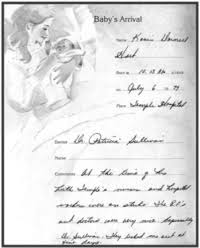 Baby's Arrival
Name
Hart
Born at 10:12 AM
on July 6, 19 79
Place Temple Hospital
Doctor Dr. Patricia Sullivan
Nurse
Comments At the time of his
birth Temple's nurses and hospital
workers were on strike. The R.N.'s
and doctors were very nice especially
Dr. Sullivan. They let me out at
four days.